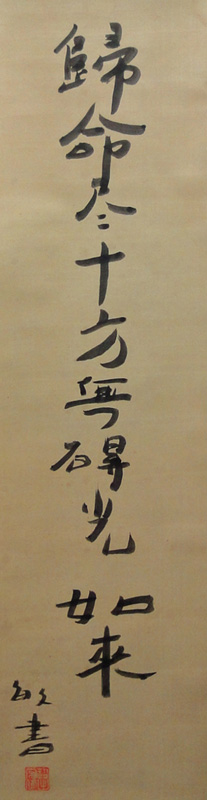 歸命尽十方無碍光如来
敏書